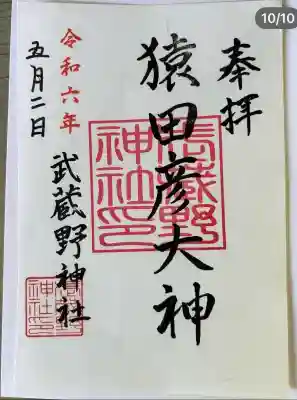 10/10
奉拝
猿田彦大神
武蔵野神社印
令和六年
五月二日
武蔵野神社